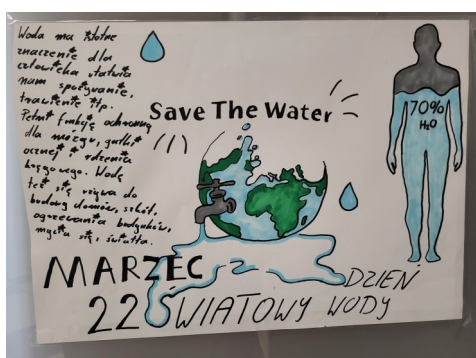 Woda ma istotne
znaczenie dla
człowieka ułatwia
nam spożywanie,
trawienie itp.
Pełni funkcję ochronną
dla mózgu, gałki
ocznej i rdzenia
kręgowego. Wodę
też się używa do
budowy domów, szkół,
ogrzewania budynków,
mycia się, światła.
Save The Water
70%
H₂O
MARZEC
22 ŚWIATOWY DZIEŃ WODY